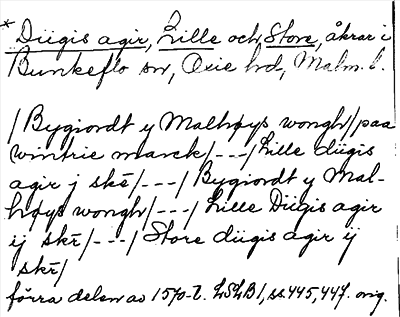 * Diigis agir, Lille och Store, åkrar i
Bunkeflo sn, Oxie hd, Malm. l.
/ Bygiordt y Malhøys wongh / paa
wintrie marck / --- / Lille diigis
agir j skē / --- / Bygiordt y Mal-
høys wongh / --- / Lille Diigis agir
ij skr̄ / --- / Store diigis agir ij
skr̄ /
förra delen av 1570-t. LSLB 1, ss. 445, 447. orig.